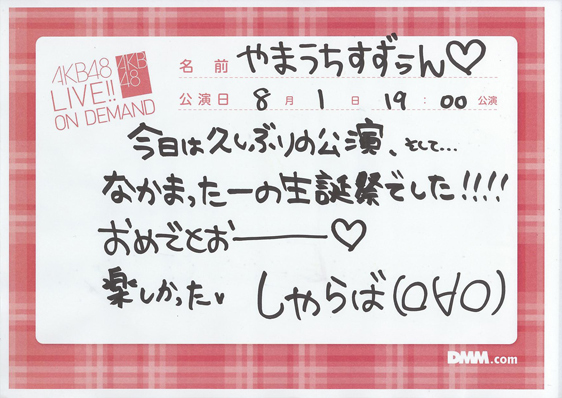 AKB48
LIVE!!
ON DEMAND
AKB
48
名前 やまうちすずぅん♡
公演日 8月1日 19:00公演
今日は久しぶりの公演、そして…
なかまったーの生誕祭でした!!!!
おめでとおー♡
楽しかった♥ しゃらば(O∀O)
DMM.com